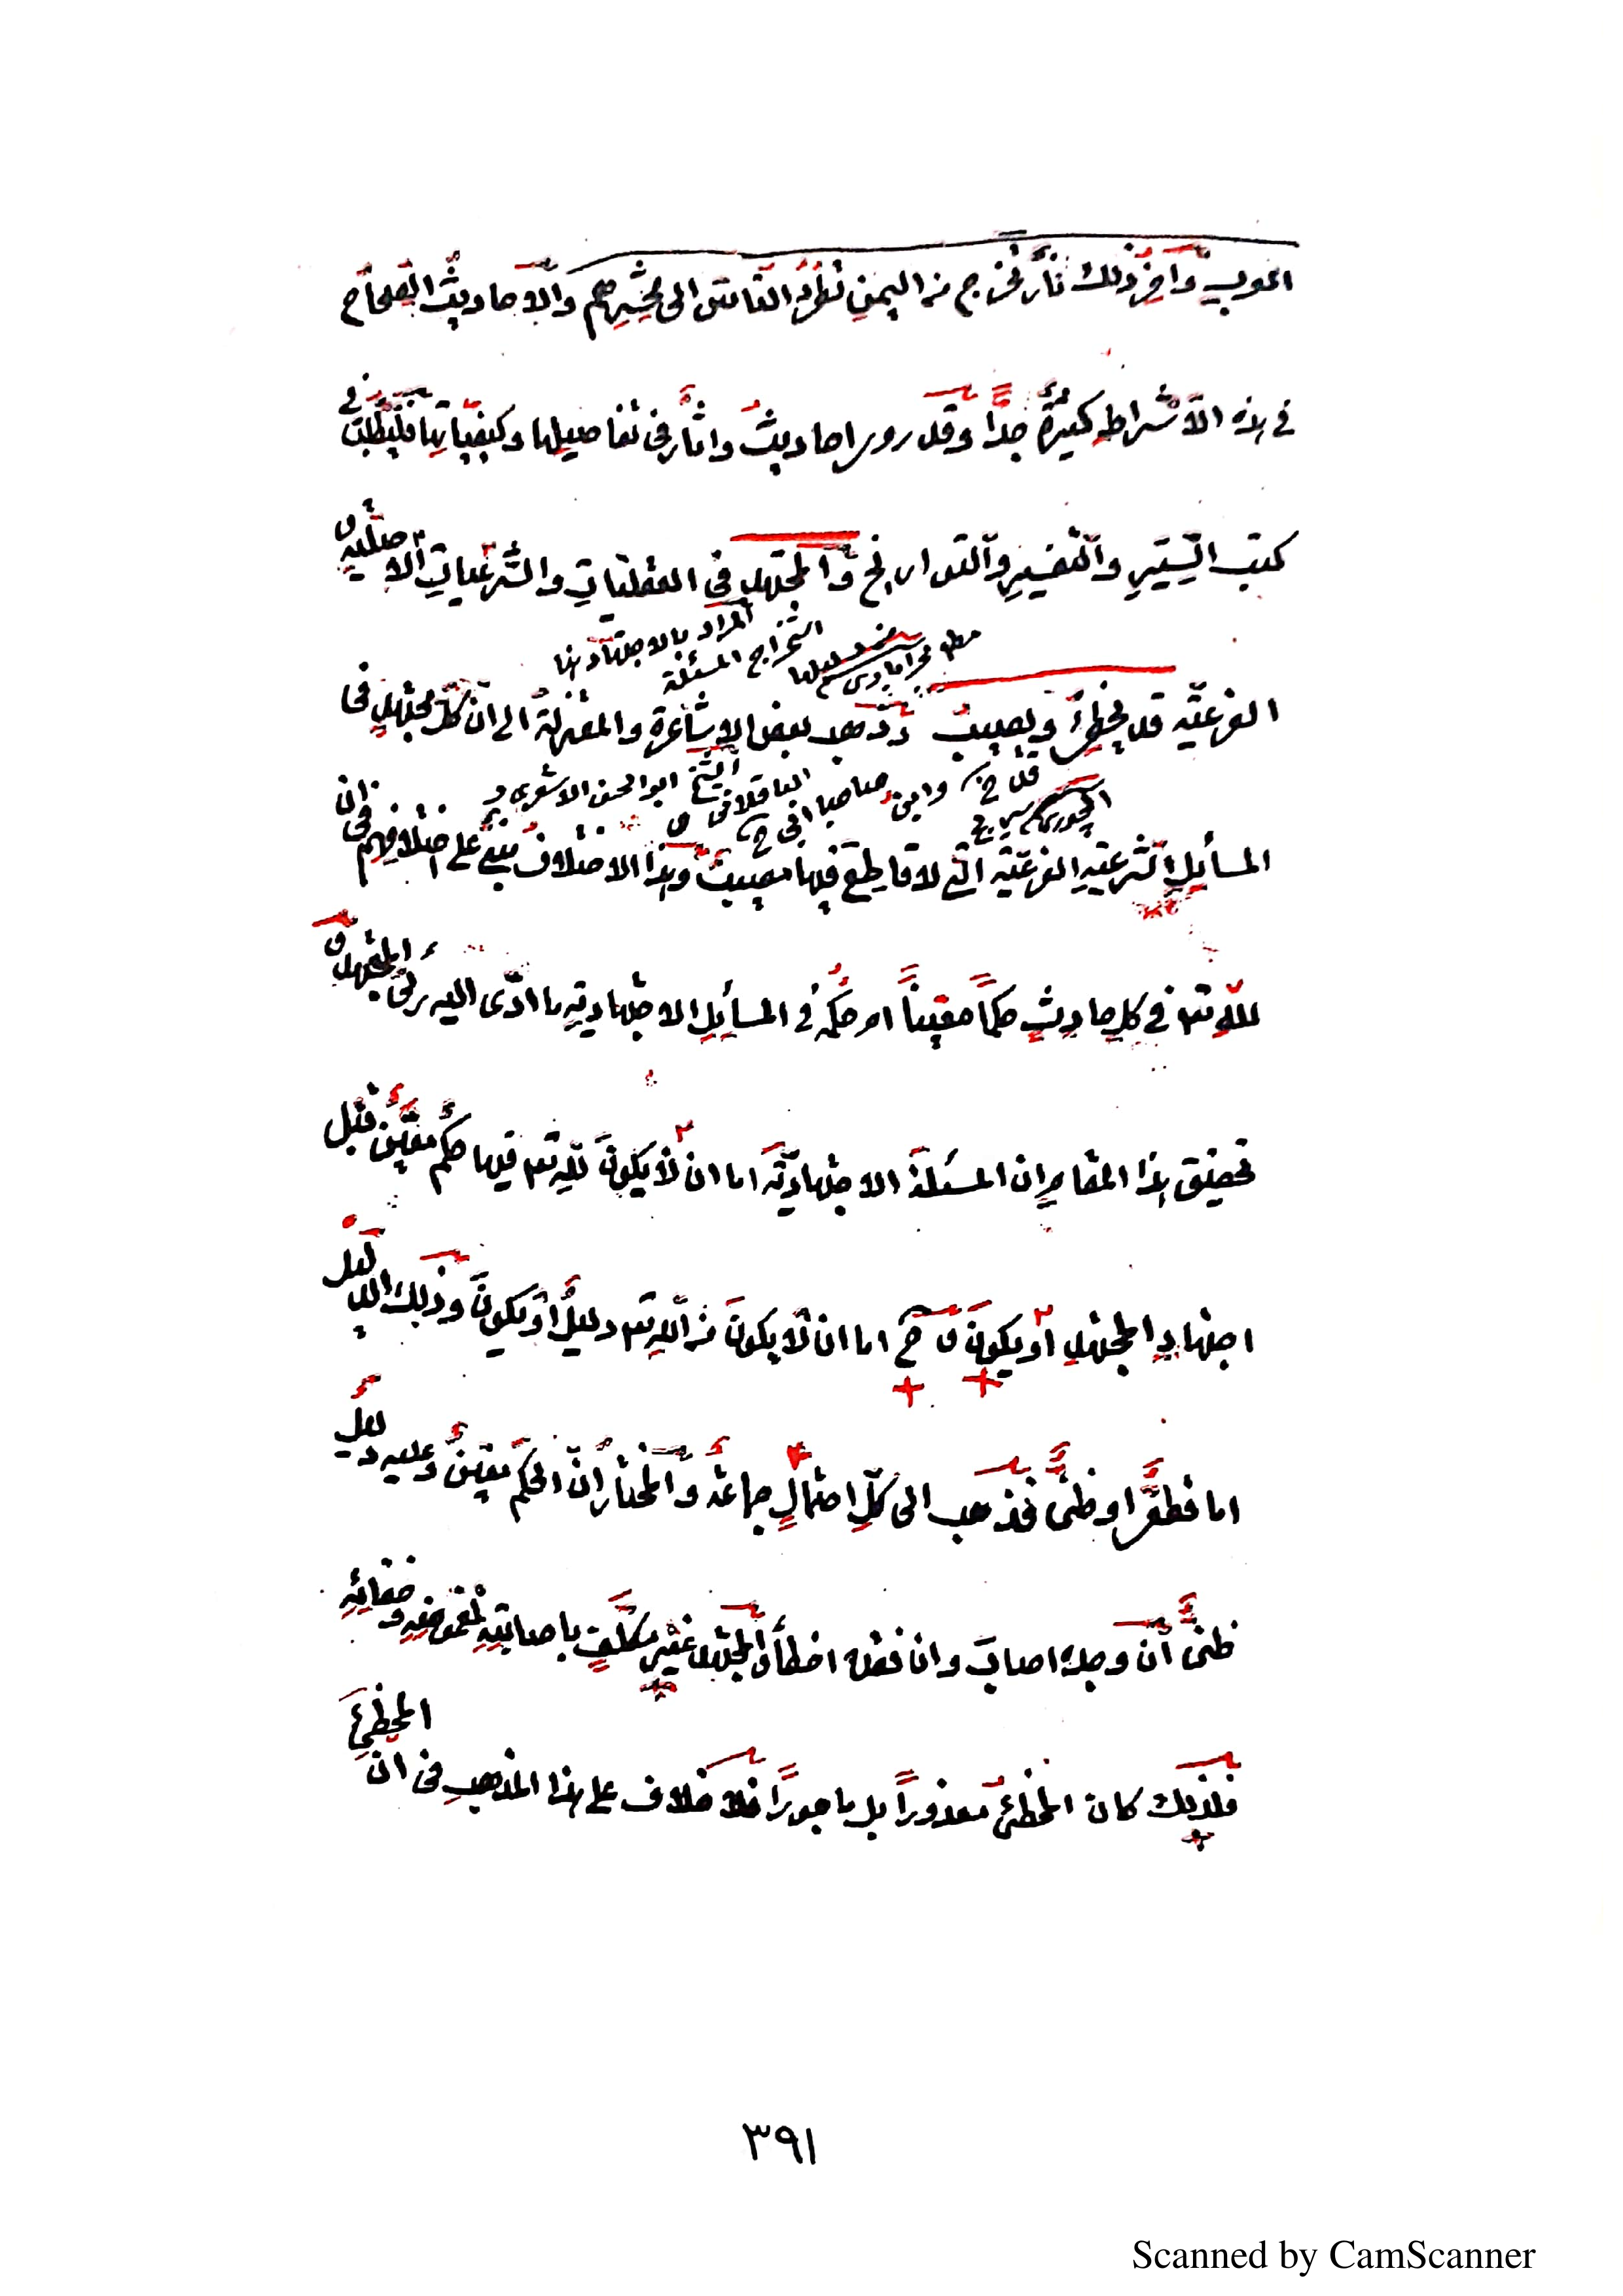 العرب وآخر ذلك نار تخرج من اليمن تطرد الناس الى محشرهم والاحاديث الصحاح
في هذه الاشراط كثيرة جدا وقد روى احاديث واثار في تفاصيلها وكيفياتها فليطلب في
كتب السير والتفسير والتواريخ والمجتهد في العقليات والشرعيات الاصلية و
المراد بالاجتهاد هنا
استخراج المسئلة
الفرعية قد يخطئ ويصيب وذهب بعض الاشاعرة والمعتزلة الى ان كل مجتهد في
الشيخ ابو الحسن الاشعرى
المسائل الشرعية الفرعية التي لا قاطع فيها مصيب وهذا الاختلاف مبني على اختلافهم في ان
لله تع في كل حادث حكما معينا ام حكمه في المسائل الاجتهادية ما ادى اليه رأى المجتهد و
تحقيق هذا المقام ان المسئلة الاجتهادية اما ان لا يكون لله تع فيها حكم معين قبل
اجتهاد المجتهد او يكون و ح اما ان لا يكون من الله تع دليل او يكون وذلك الدليل
اما قطعى او ظنى فذهب الى كل احتمال جماعة والمختار ان الحكم معين وعليه دليل
ظنى ان وجده اصاب وان فقده اخطأ والمجتهد غير مكلف باصابته لغموضه وخفائه
فلذلك كان المخطئ معذورا بل ماجورا فلا خلاف على هذا المذهب في ان المخطئ
٣٩١
Scanned by CamScanner